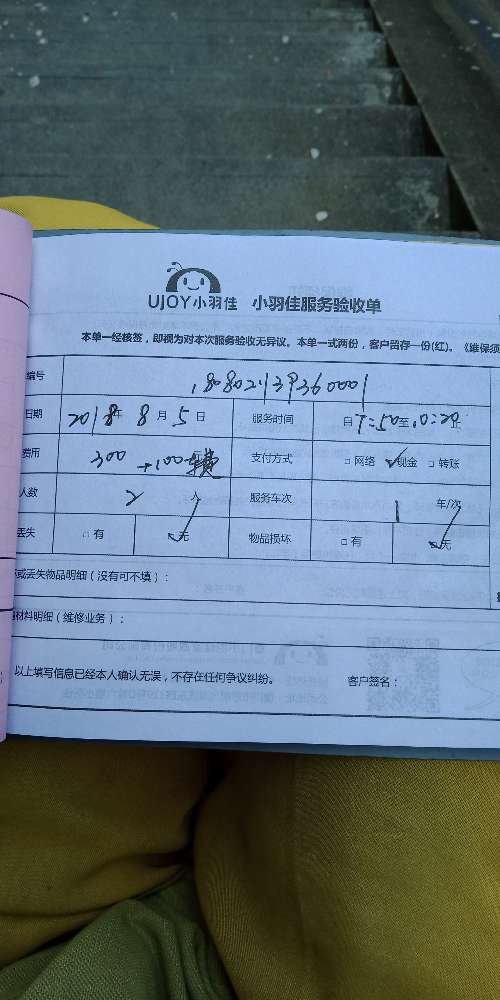 UJOY小羽佳 小羽佳服务验收单
本单一经核签，即视为对本次服务验收无异议。本单一式两份，客户留存一份(红)。《维保须
编号
日期 2018年 8月 5日 服务时间 自7:50至10:20止
费用 300 +100车费 支付方式 □ 网络 ✓现金 □ 转账
人数 2 人 服务车次 1 车/次
丢失 □ 有 ✓无 物品损坏 □ 有 ✓无
或丢失物品明细（没有可不填）：
材料明细（维修业务）：
以上填写信息已经本人确认无误，不存在任何争议纠纷。 客户签名：